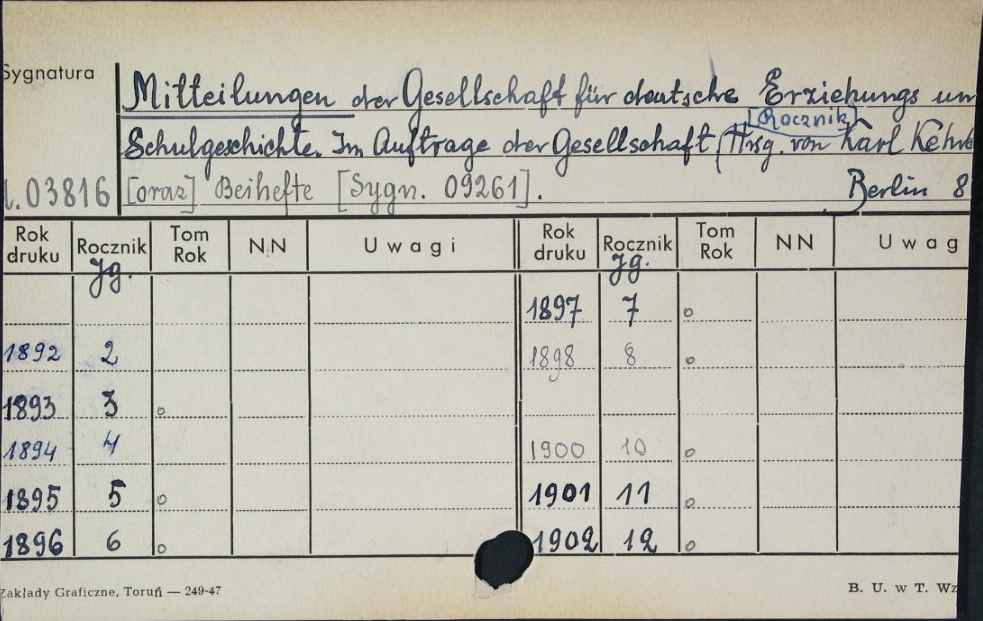 Sygnatura
Mitteilungen der Gesellschaft für deutsche Erziehungs un
[Rocznik]
Schulgeschichte. Im Auftrage der Gesellschaft (Hrsg. von Karl Kehrb
.03816 [oraz] Beihefte [Sygn. 09261]. Berlin 8
Rok druku Rocznik Jg. Tom Rok NN Uwagi Rok druku Rocznik Jg. Tom Rok NN Uwag
1897 7 o
1892 2 1898 8 o
1893 3 o
1894 4 1900 10 o
1895 5 o 1901 11 o
1896 6 o 1902 12 o
Zakłady Graficzne, Toruń — 249-47 B. U. w T. Wz